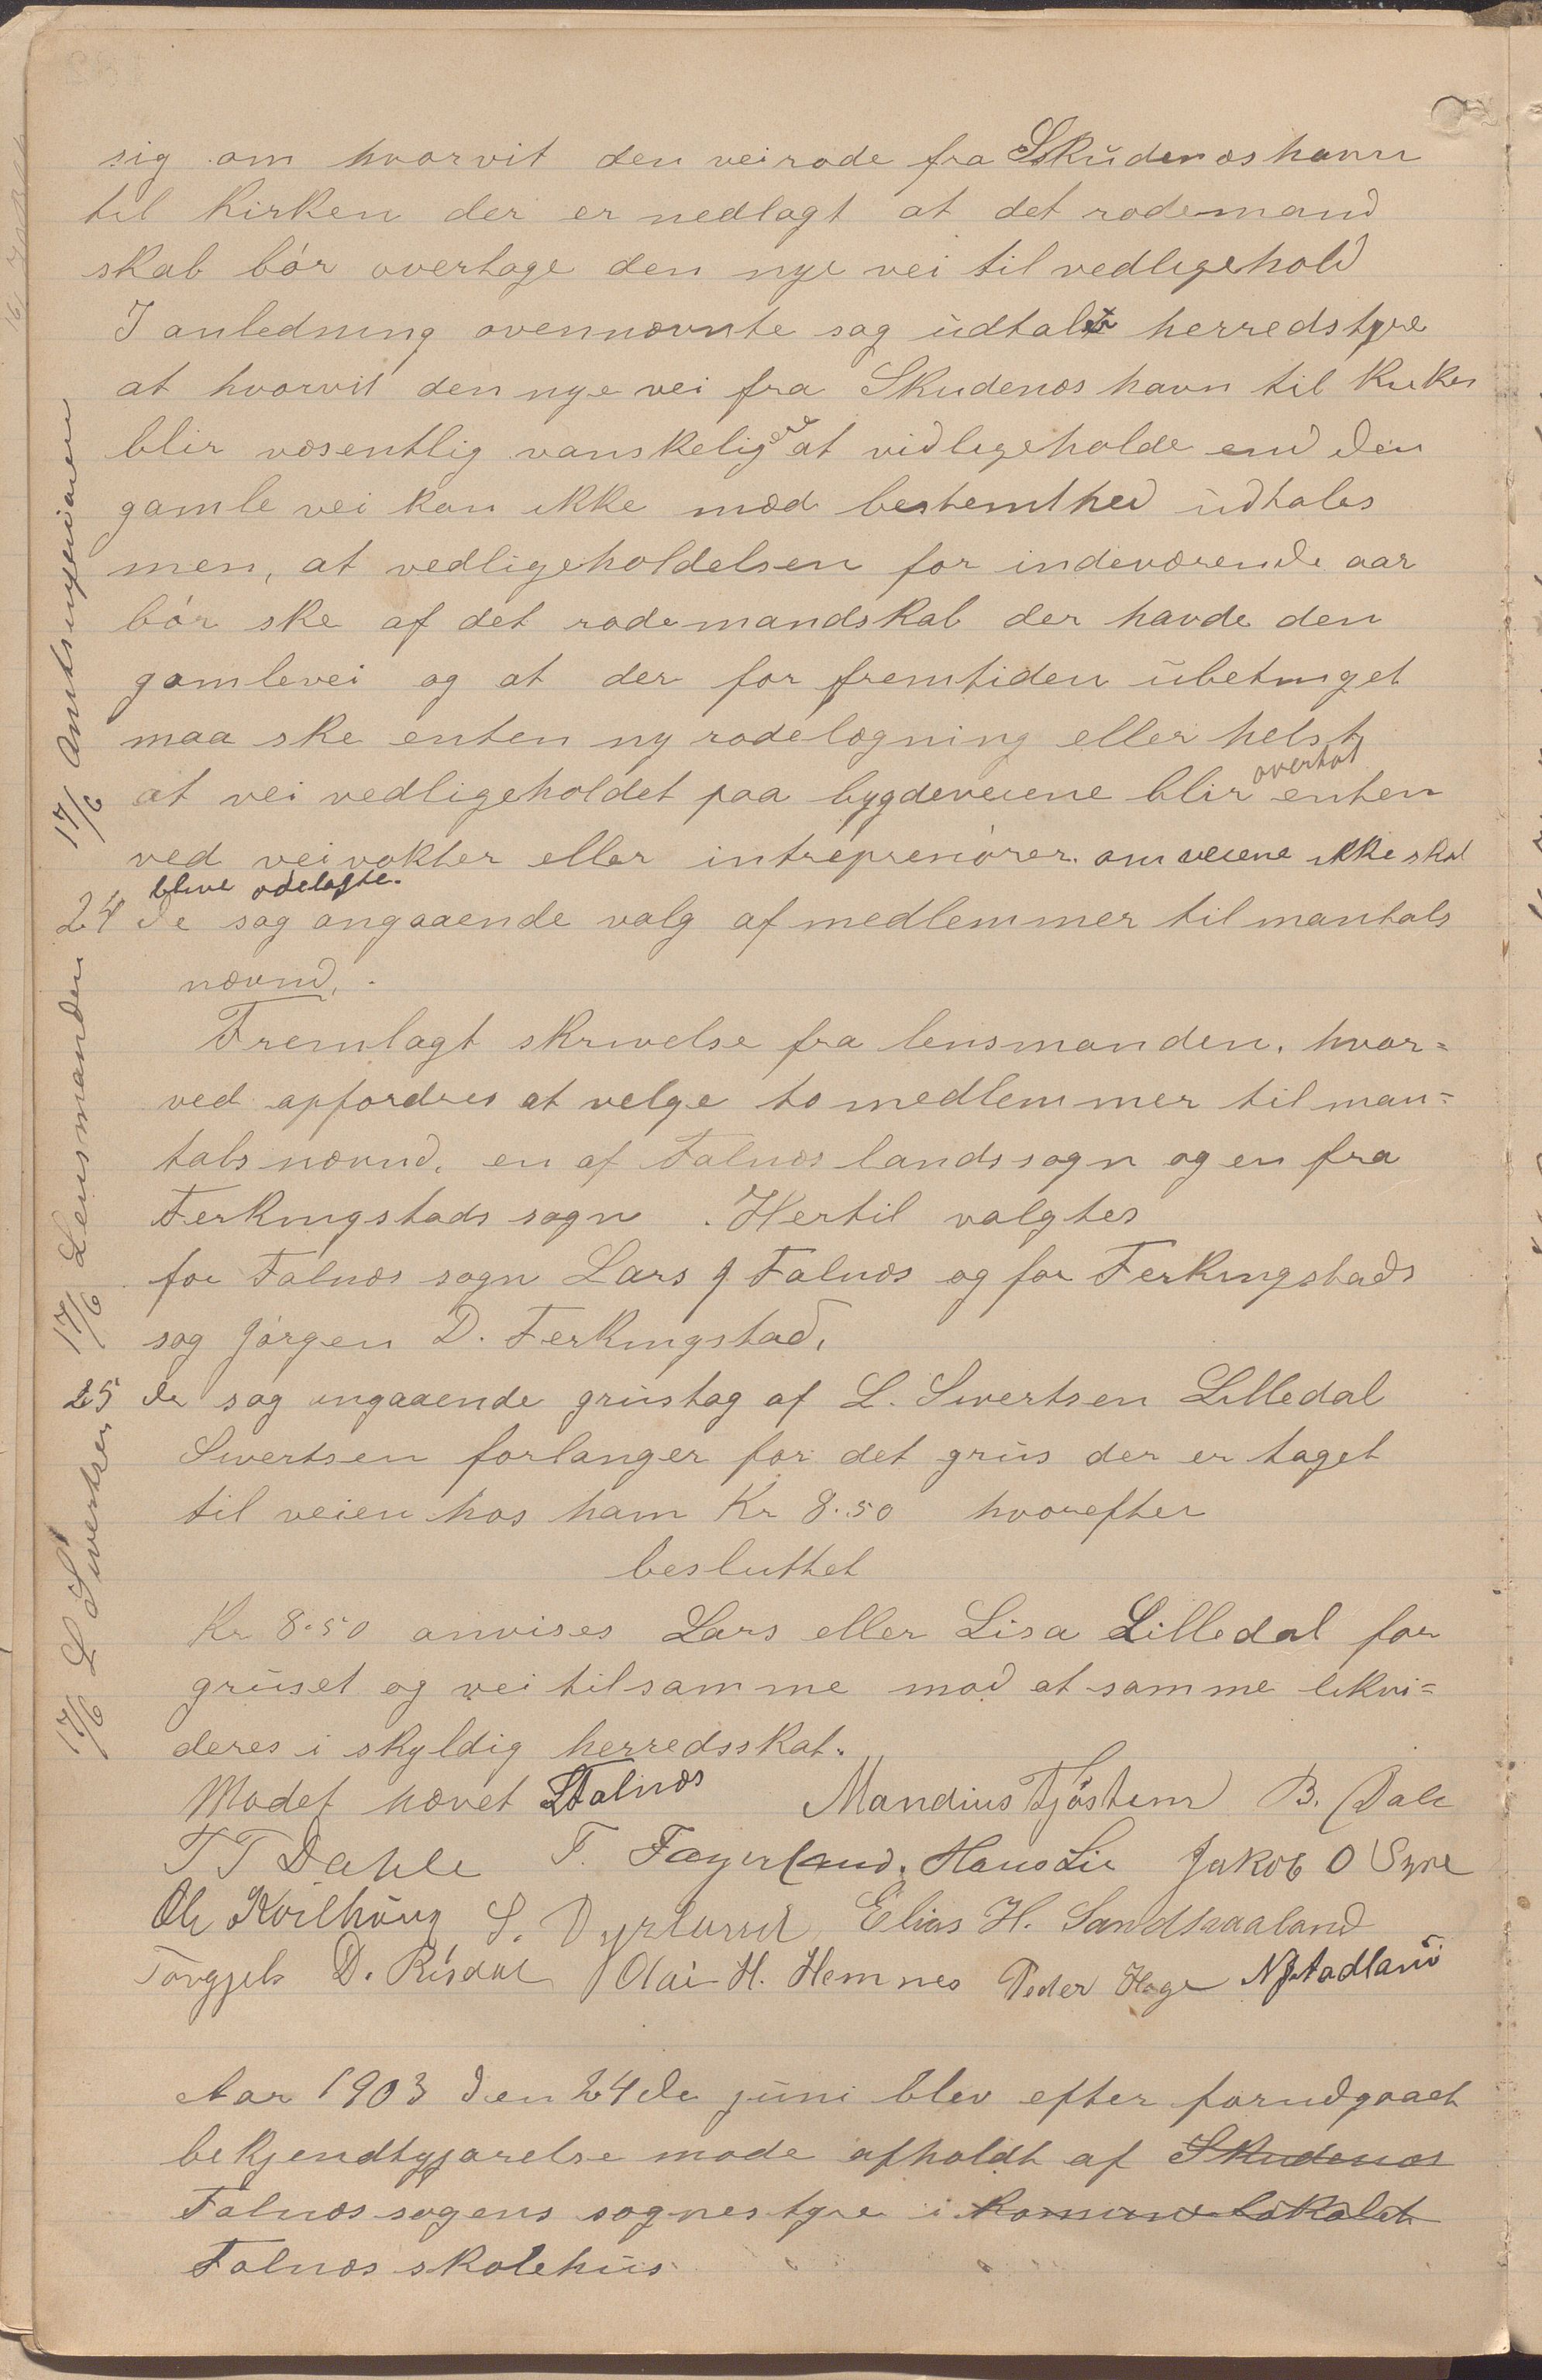 sig om hvorvit den veirode fra Skudenæshavn
til Kirken der er nedlagt at det rodemand
skab bór overtage den nye vei til vedligehold
I anledning ovennævnte sag udtalte herredstyre
at hvorvit den nye vei fra Skudenæshavn til Kirken
blir væsentlig vanskeligere at vidligeholde end den
gamle vei kan ikke mæd bestemthed udtales
men, at vedligeholdelsen for indeværende aar
bór ske af det rodemandskab der havde den
gamlevei og at der for fremtiden ubetinget
maa ske enten ny rodelægning eller helst
at vei vedligeholdet paa bygdeveiene blir overtat enten
ved veivokter eller intreprenórer. om veiene ikke skal
blive ødelagte.
17/6 Amtsingeniøren
24 de sag angaaende valg af medlemmer til mantals
nævnd.
Fremlagt skrivelse fra lensmanden, hvor=
ved opfordres at velge to medlemmer til man=
tals nævnd, en af Falnæs landssogn og en fra
Ferkingstads sogn. Hertil valgtes
for Falnæs sogn Lars J Falnæs og for Ferkingstads
sog Jórgen D. Ferkingstad.
17/6 Lensmanden
25 de sag angaaende grustag af L. Sivertsen Lilledal
Sivertsen forlanger for det grus der er taget
til veien hos ham Kr 8.50 hvorefter
besluttet
Kr 8.50 anvises Lars eller Lisa Lilledal for
gruset og vei til samme mod at samme likvi=
deres i skyldig herredsskat.
17/6 L Sivertsen
Mødet hævet LFalnæs Mandius Tjøstem B. Dale
T T Dahle T. Fagerland. Hans Lie Jakob O Syre
Ole Kvilhaug S. Dyrlund Elias H. Sandhaaland
Torgjels D. Risdal Olai H. Hemnes Peder Hage N J Stadland
Aar 1903 den 24de juni blev efter forudgaaet
bekjendtgjørelse møde afholdt af Skudenæs
Falnæs sogens sognestyre i Komunelokalet
Falnæs skolehus